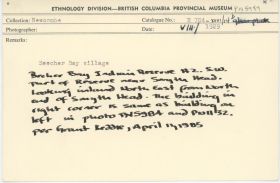 ETHNOLOGY DIVISION—BRITISH COLUMBIA PROVINCIAL MUSEUM
Collection: Newcombe Catalogue No.:
Photographer: Date: VIII/ 1929
Remarks:
Beecher Bay village
Becher Bay Indian Reserve #2. S.W.
part of Reserve near Smyth Head.
Looking inland North East from North
end of Smyth Head. The building in
right corner is same as building on
left in photo PN5984 and
per Grant Keddie, April 19, 1985